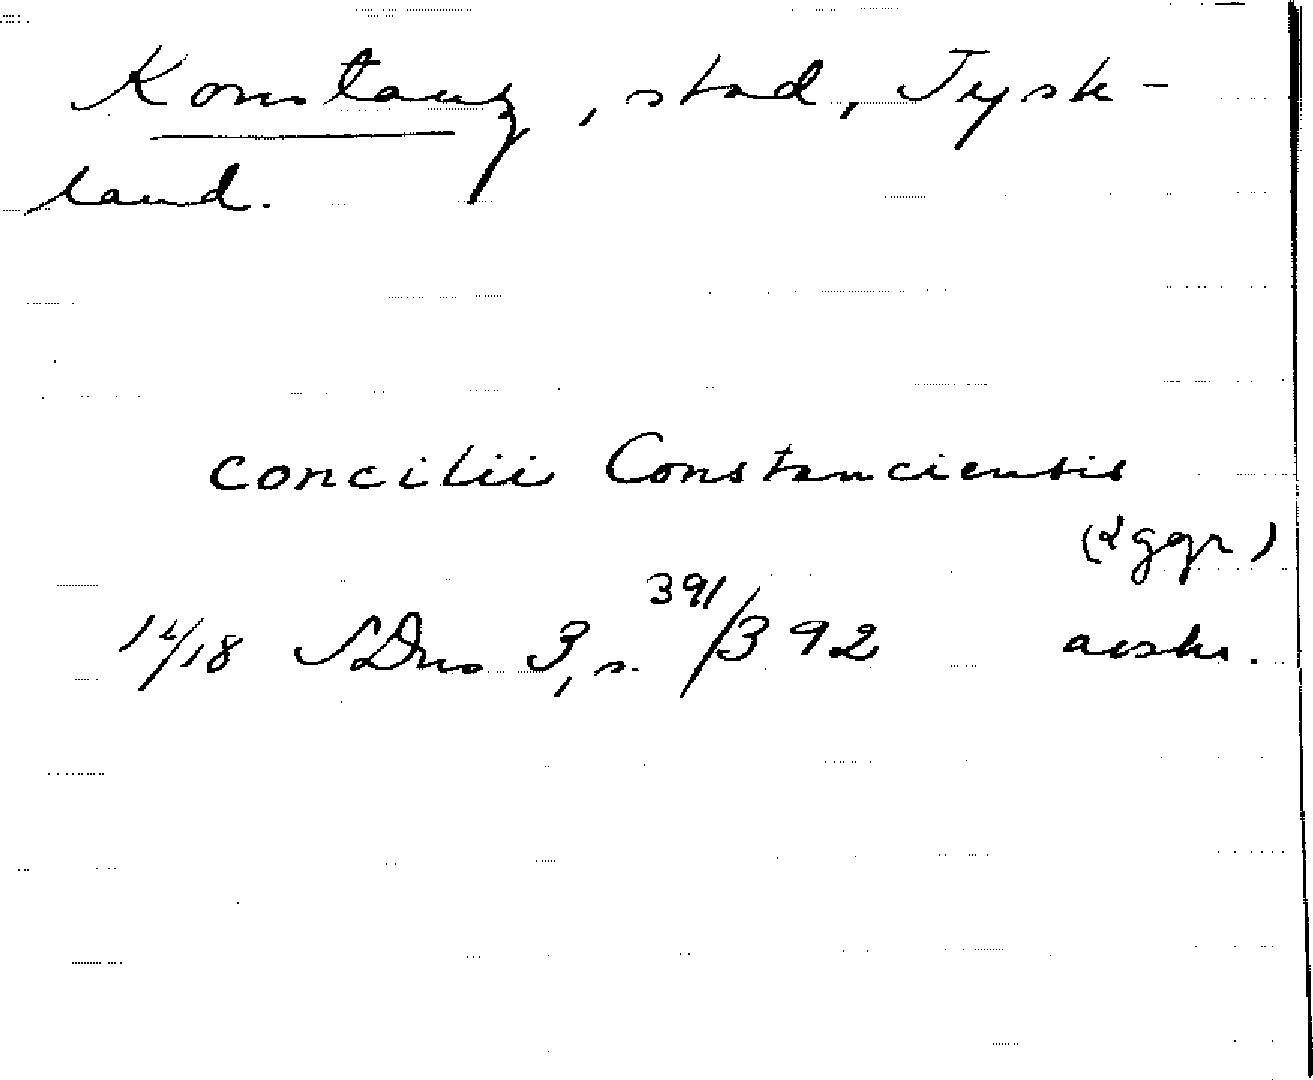 Konstanz, stad, Tysk-
land.
concilii Constanciensis
(2 ggr)
14/18 SDns 3, s. 391/392 avskr.